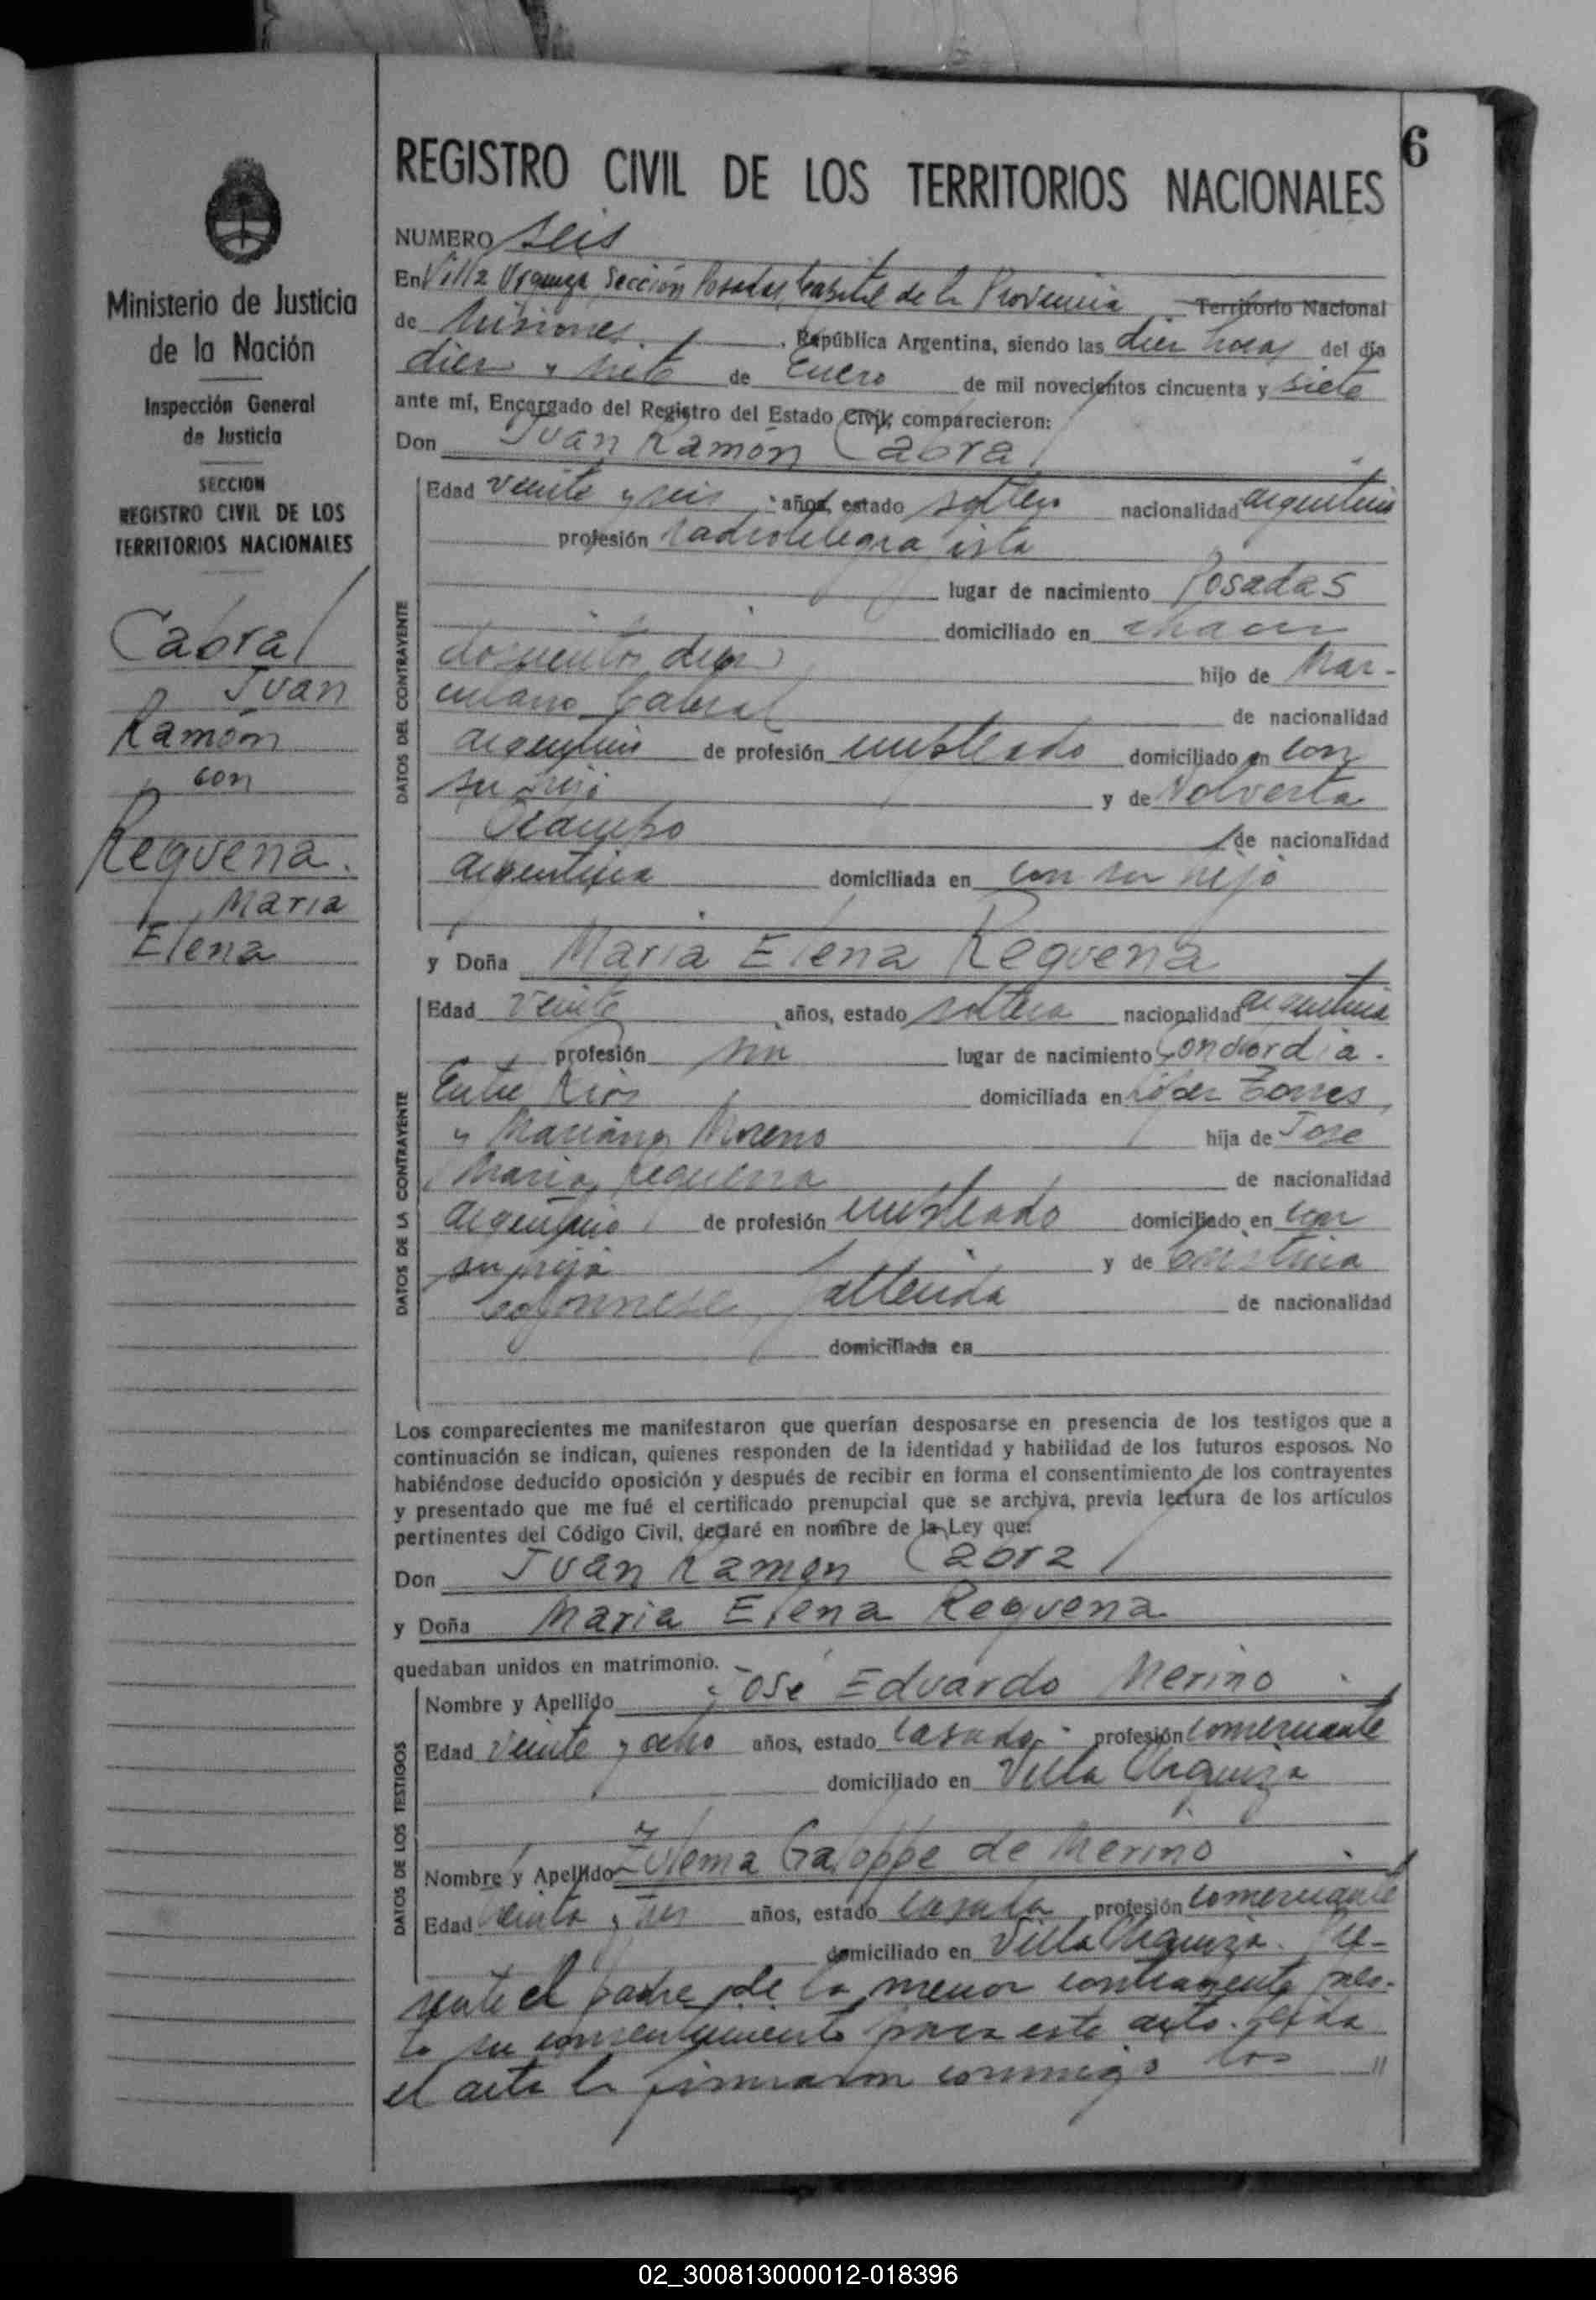 6
REGISTRO CIVIL DE LOS TERRITORIOS NACIONALES
Ministerio de Justicia
de la Nación
Inspección General
de Justicia
SECCION
REGISTRO CIVIL DE LOS
TERRITORIOS NACIONALES
Cabral
Juan
Ramón
con
Requena.
Maria
Elena
NUMERO seis
En Villa Urquiza, Sección Posadas, Capital de la Provincia Territorio Nacional
de Misiones. , República Argentina, siendo las diez horas del día
diez y siete de Enero de mil novecientos cincuenta y siete
ante mí, Encargado del Registro del Estado Civil, comparecieron:
Don Juan Ramón Cabral
DATOS DEL CONTRAYENTE
Edad veinte y seis años, estado soltero nacionalidad argentino
profesión radiotelegrafista
lugar de nacimiento Posadas
domiciliado en
doscientos diez hijo de Mar-
celano Cabral de nacionalidad
argentino de profesión empleado domiciliado en con
su hijo y de
Ocampo de nacionalidad
argentina domiciliada en con su hijo
y Doña Maria Elena Requena
DATOS DE LA CONTRAYENTE
Edad veinte años, estado soltera nacionalidad argentina
profesión sin lugar de nacimiento Concordia.
Entre Rios domiciliada en Lopez Torres
y Mariano Moreno hija de Jose
Maria Requena de nacionalidad
argentino de profesión empleado domiciliado en con
su hija y de Cristina
fallecida de nacionalidad
domiciliada en
Los comparecientes me manifestaron que querían desposarse en presencia de los testigos que a
continuación se indican, quienes responden de la identidad y habilidad de los futuros esposos. No
habiéndose deducido oposición y después de recibir en forma el consentimiento de los contrayentes
y presentado que me fué el certificado prenupcial que se archiva, previa lectura de los artículos
pertinentes del Código Civil, declaré en nombre de la Ley que:
Don Juan Ramon Cabral
y Doña Maria Elena Requena
quedaban unidos en matrimonio.
DATOS DE LOS TESTIGOS
Nombre y Apellido José Eduardo Merino
Edad veinte y ocho años, estado casado profesión comerciante
domiciliado en Villa Urquiza
Nombre y Apellido Zulema Galoppe de Merino
Edad veinte y tres años, estado casada profesión comerciante
domiciliado en Villa Urquiza. Pre-
sente el padre de la menor contrayente pres-
ta su consentimiento para este acto. Leida
el acta la firmaron conmigo los //
02_300813000012-018396